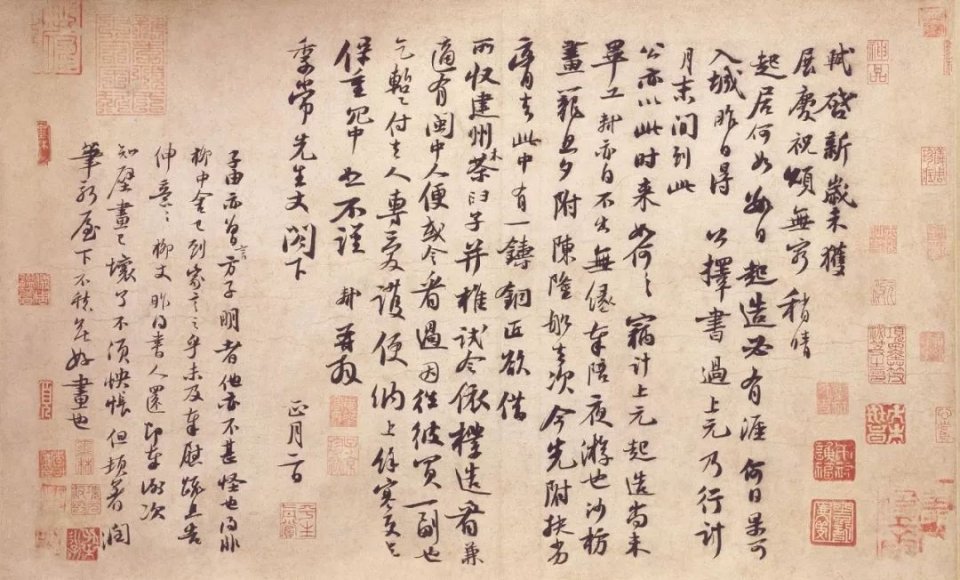 軾啓新歲未獲
展慶祝頌無窮稍晴
起居何如數日起造必有涯何日果可
入城昨日得公擇書過上元乃行計
月末間到此
公亦以此時來如何々竊計上元起造尚未
畢工軾亦自不出無緣奉陪夜游也沙枋
畫籠旦夕附陳隆船去次今先附扶劣
膏去此中有一鑄銅匠欲借
所收建州木茶臼子并椎試令依樣造看兼
適有閩中人便或令看過因往彼買一副也
乞暫付去人專愛護便納上餘寒更乞
保重冗中恕不謹軾再拜
季常先生丈閤下
正月二日
子由亦曾言方子明者他亦不甚怪也得非
柳中舍已到家言之乎未及奉慰疏且告
伸意々柳丈昨得書人還即奉謝次
知壁畫已壞了不須怏悵但頓着潤
筆新屋下不愁無好畫也